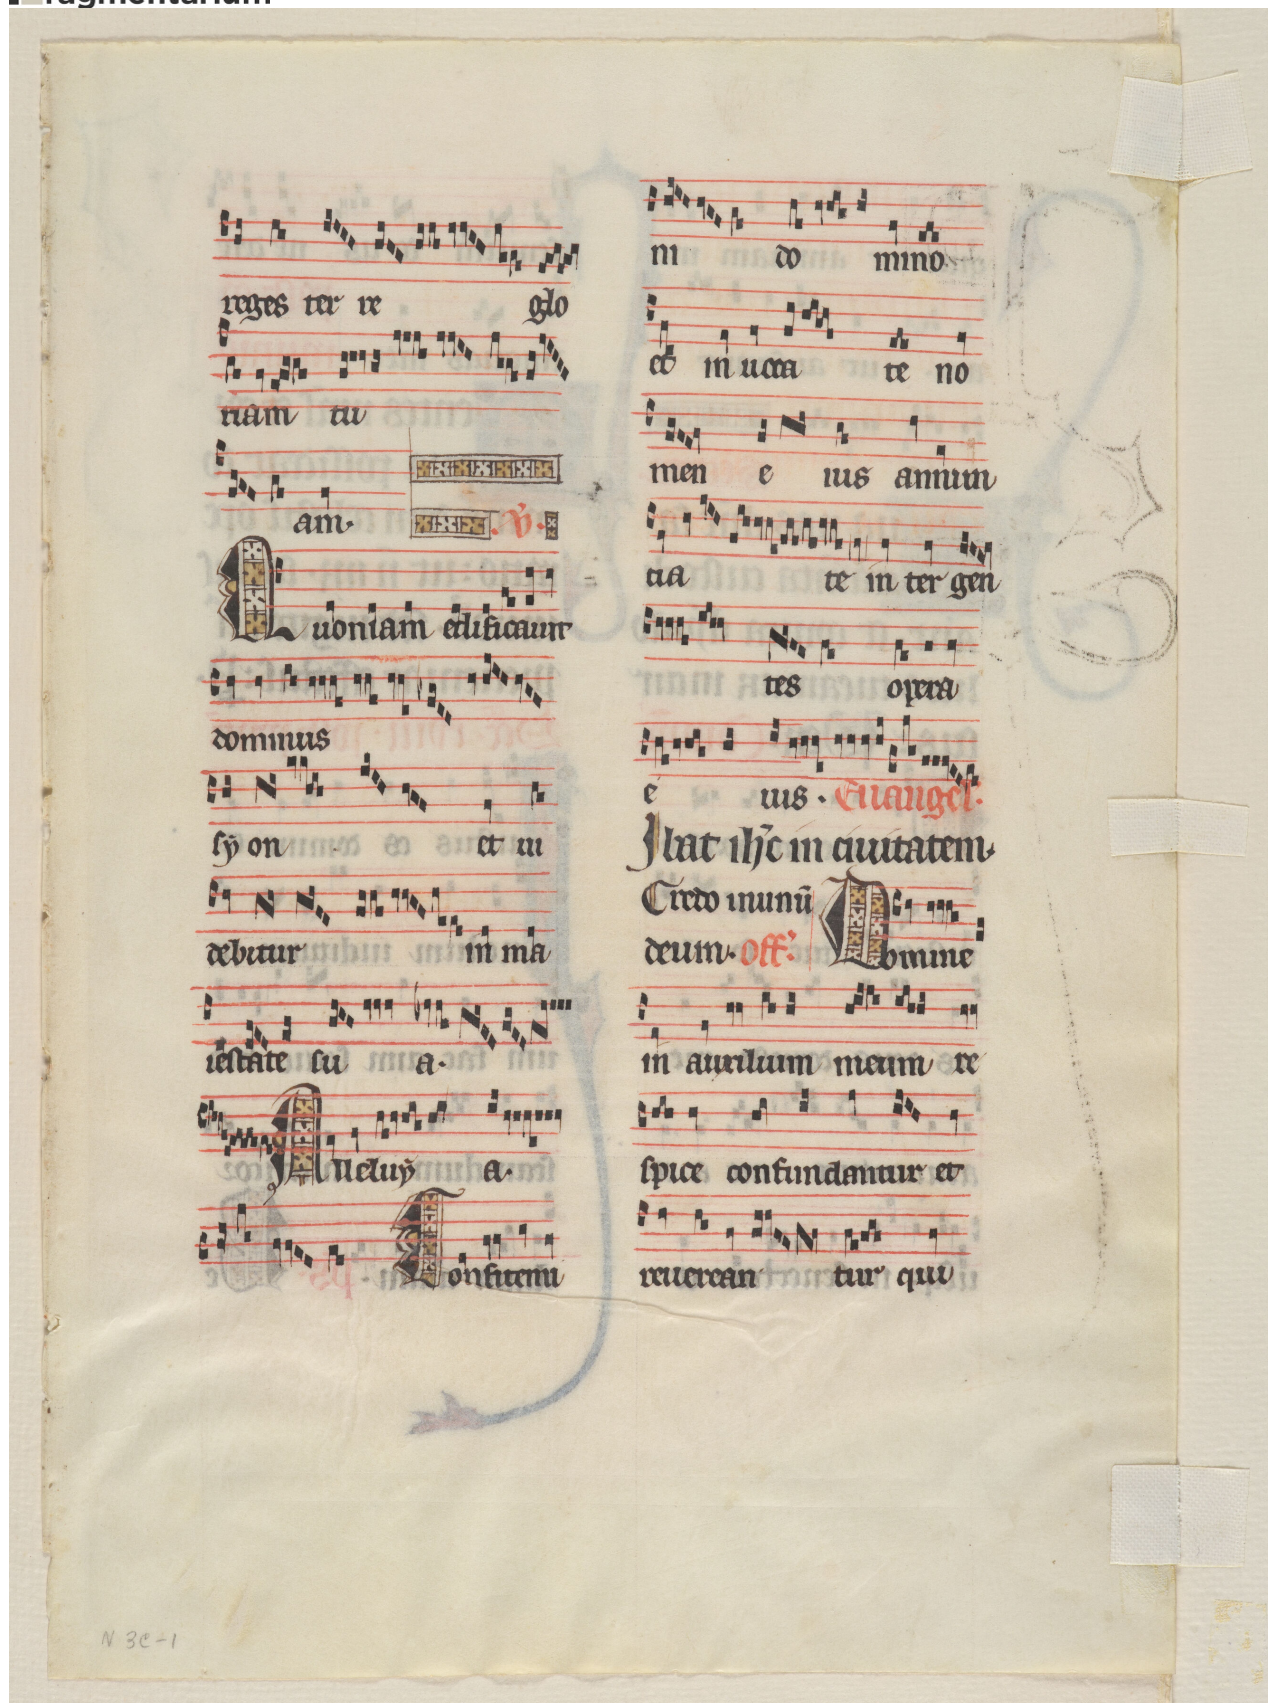 fragmentarium
reges ter re glo
riam tu
am. .V.
Quoniam edificauit
dominus
sÿ on et ui
debitur in ma
iestate su a.
Alleluÿ a.
Confitemi
ni do mino
et inuoca te no
men e ius annun
cia te in ter gen
tes opera
e ius. Euangel.
Ibat ih̄c in ciuitatem.
Credo inunū
deum. off. Domine
in auxilium meum re
spice confundantur et
reuerean tur qui
N 3C-1